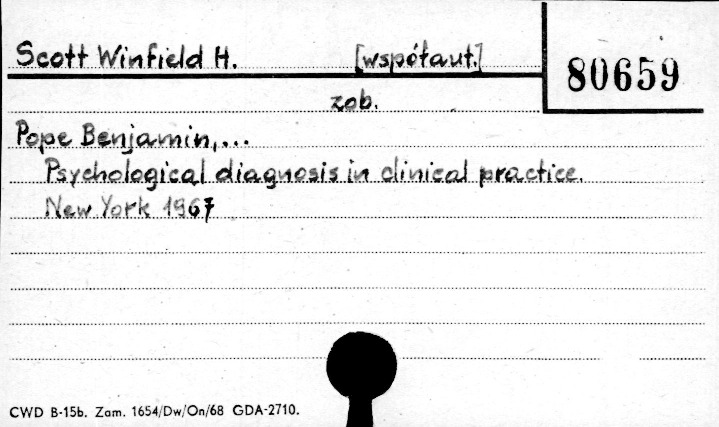 Scott Winfield H. [współaut.]
80659
zob.
Pope Benjamin,...
Psychological diagnosis in clinical practice.
New York 1967
CWD B-15b. Zam. 1654/Dw/On/68 GDA-2710.